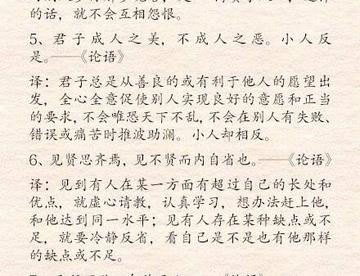 的话，就不会互相怨恨。
5、君子成人之美，不成人之恶。小人反
是。——《论语》
译：君子总是从善良的或有利于他人的愿望出
发，全心全意促使别人实现良好的意愿和正当
的要求，不会唯恐天下不乱，不会在别人有失败、
错误或痛苦时推波助澜。小人却相反。
6、见贤思齐焉，见不贤而内自省也。——《论语》
译：见到有人在某一方面有超过自己的长处和
优点，就虚心请教，认真学习，想办法赶上他，
和他达到同一水平；见有人存在某种缺点或不
足，就要冷静反省，看自己是不是也有他那样
的缺点或不足。